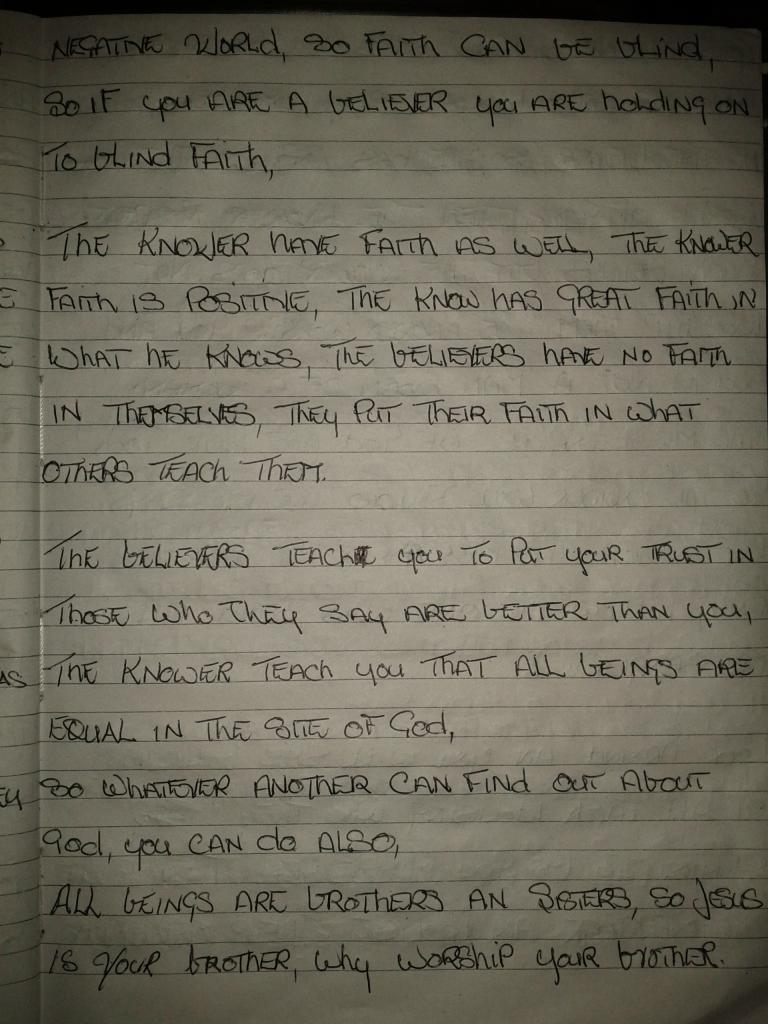 NEGATIVE WORLD, SO FAITH CAN BE BLIND,
SO IF YOU ARE A BELIEVER YOU ARE HOLDING ON
TO BLIND FAITH,
THE KNOWER HAVE FAITH AS WELL, THE KNOWER
FAITH IS POSITIVE, THE KNOW HAS GREAT FAITH IN
WHAT HE KNOWS, THE BELIEVERS HAVE NO FAITH
IN THEMSELVES, THEY PUT THEIR FAITH IN WHAT
OTHERS TEACH THEM.
THE BELIEVERS TEACH YOU TO PUT YOUR TRUST IN
THOSE WHO THEY SAY ARE BETTER THAN YOU,
THE KNOWER TEACH YOU THAT ALL BEINGS ARE
EQUAL IN THE SITE OF GOD,
SO WHATEVER ANOTHER CAN FIND OUT ABOUT
GOD, YOU CAN DO ALSO,
ALL BEINGS ARE BROTHERS AN SISTERS, SO JESUS
IS YOUR BROTHER, WHY WORSHIP YOUR BROTHER.